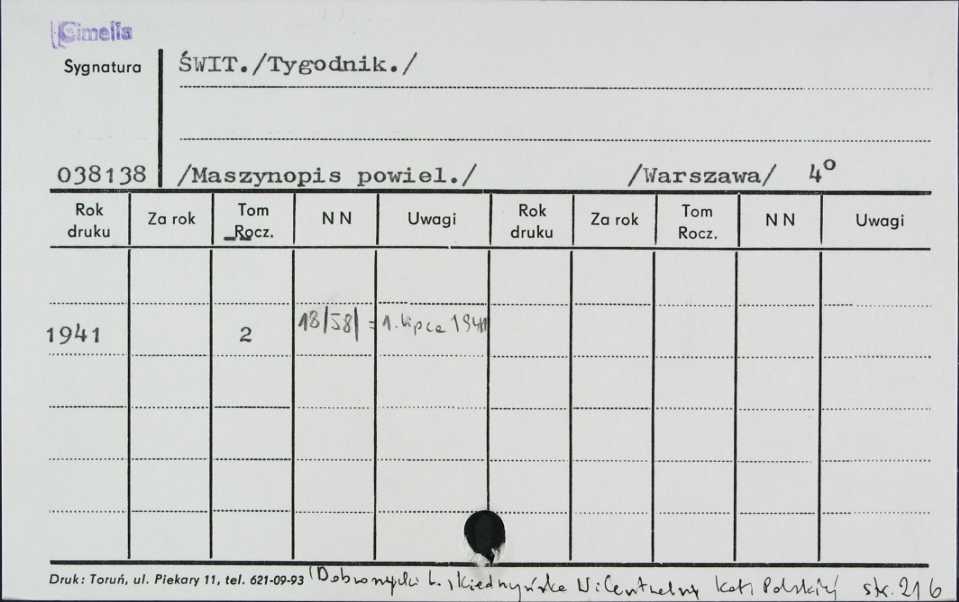 Cimelia
Sygnatura
ŚWIT./Tygodnik./
038138 /Maszynopis powiel./ /Warszawa/ 4º
Rok druku Za rok Tom Rocz. N N Uwagi Rok druku Za rok Tom Rocz. N N Uwagi
1941 2 18/58/ = 1. lipca 1941
Druk: Toruń, ul. Piekary 11, tel. 621-09-93 (Dobroszycki L. Centralny kat. Polskiej str. 216